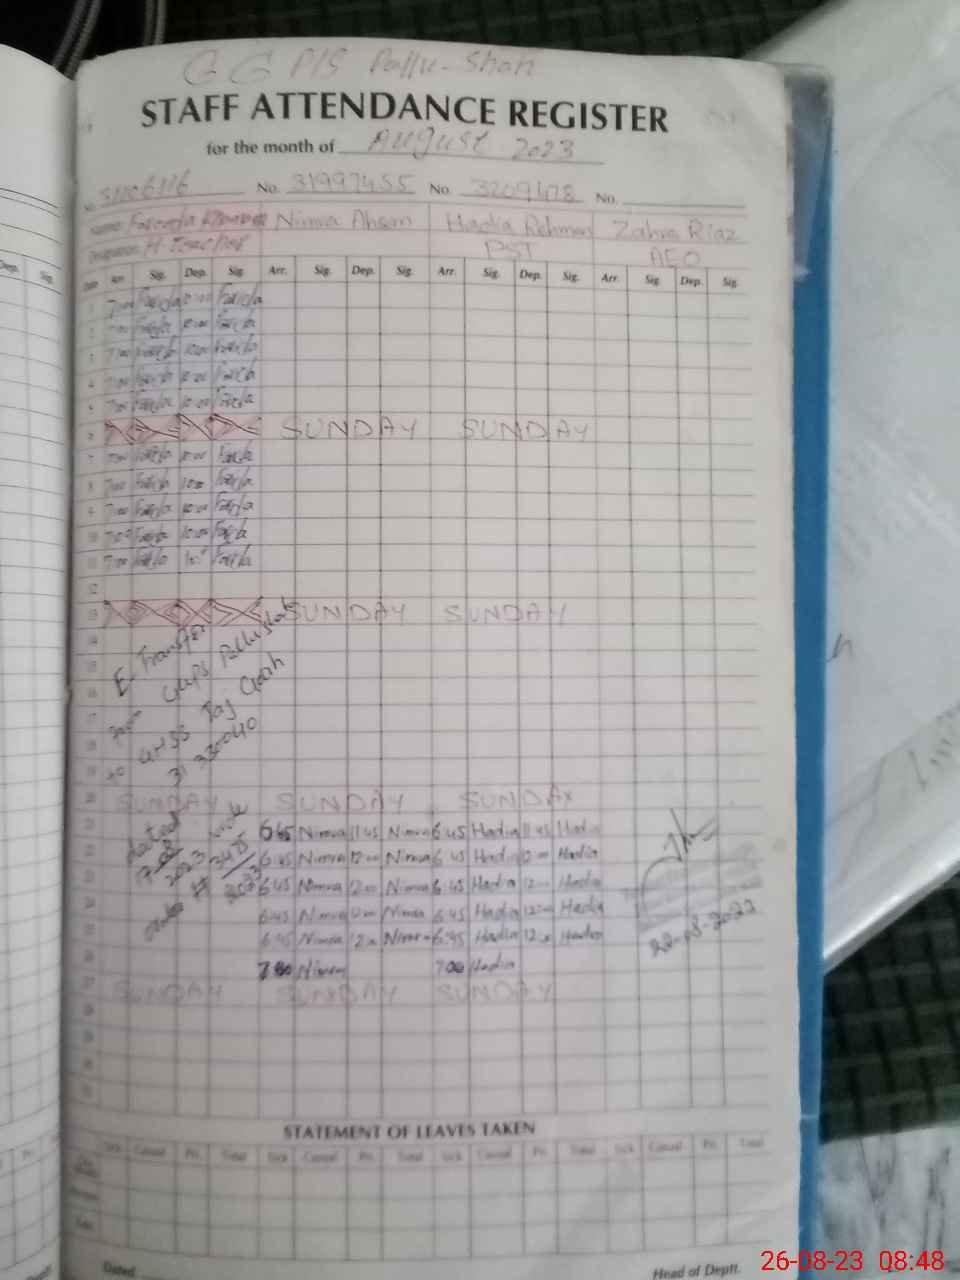 GGPS Pallu-Shah
STAFF ATTENDANCE REGISTER
for the month of August 2023
No. 31997455 No. 3209478 No.
Name: Nimra Ahsan Hadia Rehman Zahra Riaz
Designation: H-Teacher PST AEO
Date Arr. Sig. Dep. Sig. Arr. Sig. Dep. Sig. Arr. Sig. Dep. Sig. Arr. Sig. Dep. Sig.
1 7:00 Faricla 10:00 Faricla
2 7:00 Faricla 10:00 Faricla
3 7:00 Faricla 10:00 Faricla
4 7:00 Faricla 10:00 Faricla
5 7:00 Faricla 10:00 Faricla
6 SUNDAY SUNDAY
7 7:00 Faricla 10:00 Faricla
8 7:00 Faricla 10:00 Faricla
9 7:00 Faricla 10:00 Faricla
10 7:00 Faricla 10:00 Faricla
11 7:00 Faricla Faricla
12
13 SUNDAY SUNDAY
14 E-Transfer
15 from GGPS Pallushah
16
17 to GHSS Taj Garh
18 31330040
19
20 SUNDAY SUNDAY SUNDAY
21 6:45 Nimra 11:45 Nimra 6:45 Hadia 11:45 Hadia
22 6:45 Nimra 12:00 Nimra 6:45 Hadia 12:00 Hadia
23 6:45 Nimra 12:00 Nimra 6:45 Hadia 12:00 Hadia
24 6:45 Nimra 12:00 Nimra 6:45 Hadia 12:00 Hadia
25 6:45 Nimra 12:00 Nimra 6:45 Hadia 12:00 Hadia
26 7:00 Nimra 7:00 Hadia
27 SUNDAY SUNDAY SUNDAY
28
29
30
31
dated
2023
22-08-2023
STATEMENT OF LEAVES TAKEN
Sick Casual Pri. Total Sick Casual Pri. Total Sick Casual Pri. Total Sick Casual Pri. Total
Dated
Head of Deptt.
26-08-23 08:48